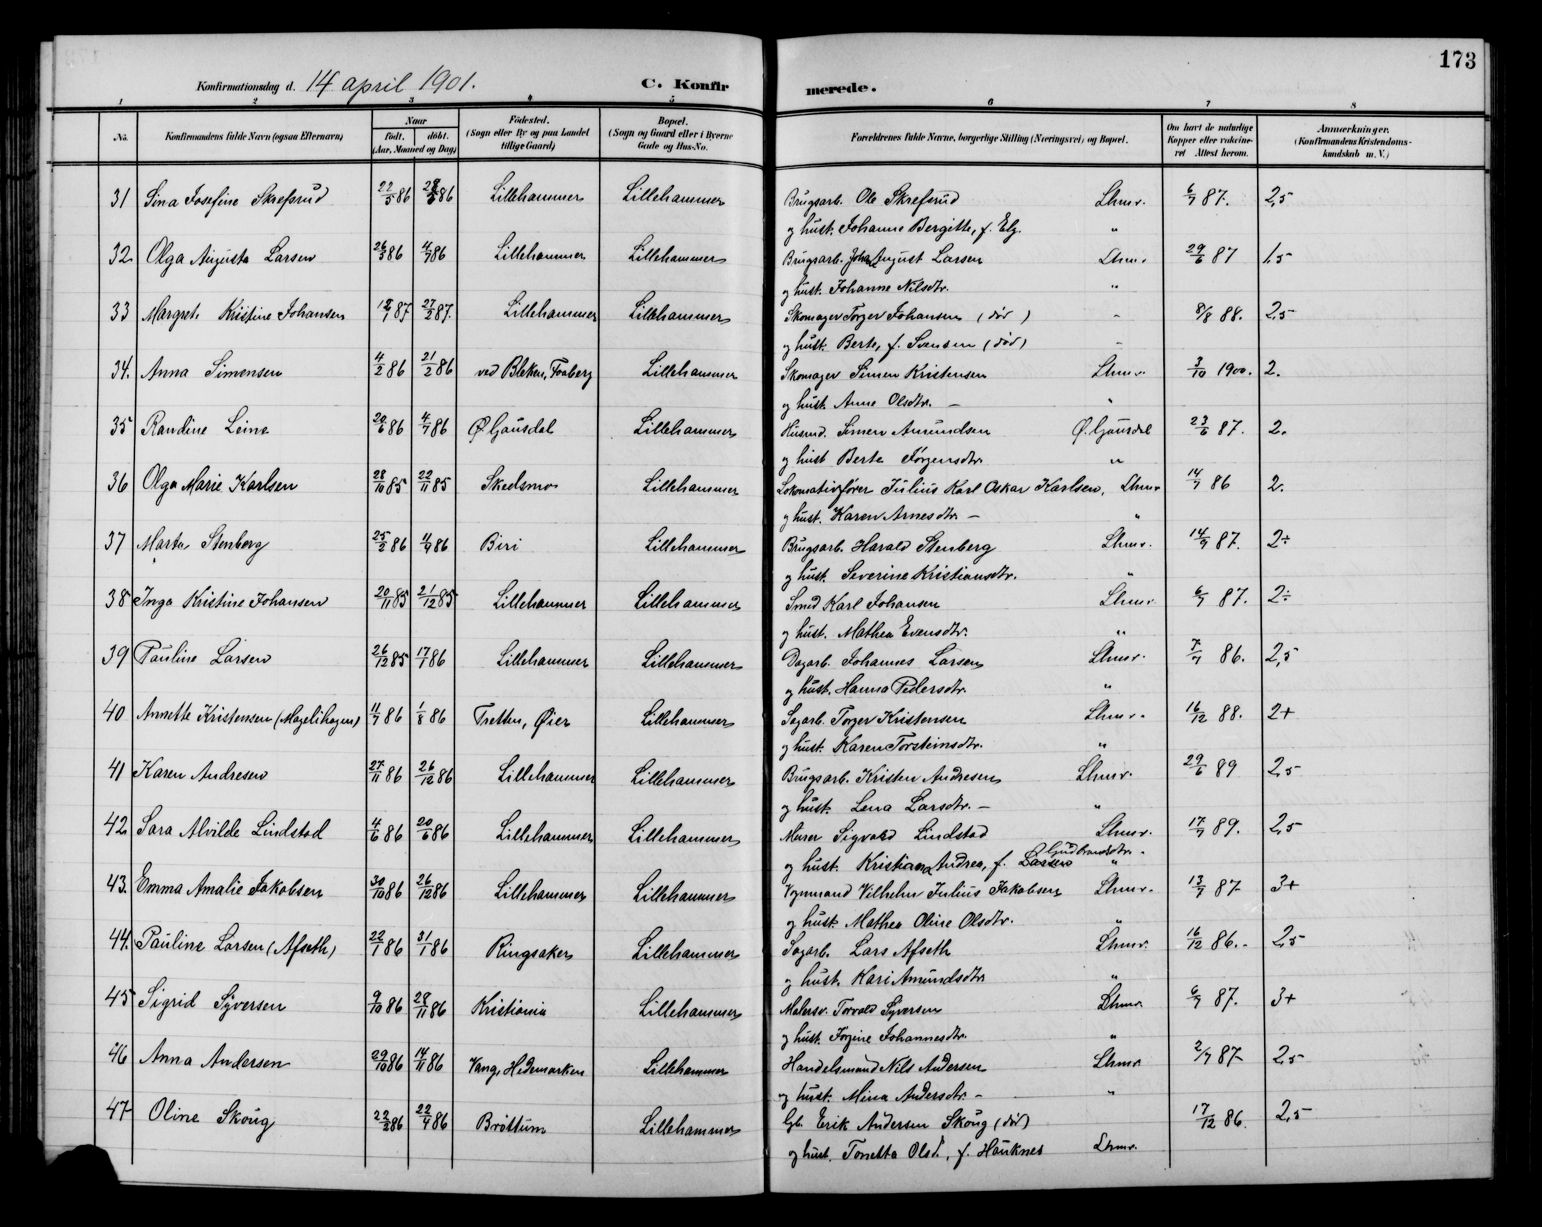 173
Konfirmationsdag d. 14 april 1901. C. Konfirmerede.
1 2 3 4 5 6 7 8
No. Konfirmandens fulde Navn (ogsaa Efternavn) Naar født. døbt. (Aar, Maaned og Dag) Fødested. (Sogn eller By og paa Landet tillige Gaard) Bopæl. (Sogn og Gaard eller i Byerne Gade og Hus-No. Forældrenes fulde Navne, borgerlige Stilling (Næringsvei) og Bopæl. Om havt de naturlige Kopper eller vaksineret Attest herom. Anmærkninger. (Konfirmandens Kristendomskundskab m. V.)
31 Sina Josefine Skrefsrud 22/5 86 86 Lillehammer Lillehammer Brugsarb. Ole Skrefsrud Lhmr. 6/7 87. 2,5
og hust. Johanne Bergitte, f. Elg. "
32 Olga Augusta Larsen 26/3 86 4/7 86 Lillehammer Lillehammer Brugsarb. Johan August Larsen Lhmr. 29/6 87 1,5
og hust. Johanne Nilsdtr. "
33 Margrete Kristine Johansen 87 27/2 87. Lillehammer Lillehammer Skomager Torger Johansen (død) " 8/8 88. 2,5
og hust. Berte, f. Svensen (død) "
34. Anna Simensen 4/2 86 21/2 86 ved Bleken, Faaberg Lillehammer Skomager Simen Kristensen Lhmr. 3/10 1900. 2.
og hust. Anne Olsdtr. — "
35 Randine Leine 20/6 86 4/7 86 Ø Gausdal Lillehammer Husmd. Simen Amundsen Ø. Gausdal 23/6 87. 2.
og hust Berte Jørgensdtr. "
36 Olga Marie Karlsen 28/10 85 22/11 85 Skedsmo Lillehammer Lokomativfører Julius Karl Oskar Karlsen, Lhmr 14/7 86 2.
og hust. Karen Arnesdtr. — "
37 Marta Stenberg 25/2 86 4/9 86 Biri Lillehammer Brugsarb. Harald Stenberg Lhmr. 14/9 87. 2÷
og hust. Severine Kristiansdtr. "
38 Inga Kristine Johansen 20/11 85 21/12 85 Lillehammer Lillehammer Smed Karl Johansen Lhmr. 6/7 87. 2÷
og hust. Mathea Evensdtr. "
39 Pauline Larsen 26/12 85 17/1 86 Lillehammer Lillehammer Dagarb. Johannes Larsen Lhmr. 7/7 86. 2,5
og hust. Hanna Pedersdtr. "
40 Annette Kristensen (Magelihagen) 11/7 86 1/8 86 Tretten, Øier Lillehammer Sagarb. Torger Kristensen Lhmr. 16/12 88. 2+
og hust. Karen Torsteinsdtr. "
41 Karen Andresen 27/11 86 26/12 86 Lillehammer Lillehammer Brugsarb. Kristen Andresen Lhmr. 29/6 89 2,5
og hust. Lena Larsdtr. — "
42 Sara Alvilde Lindstad 4/6 86 20/6 86 Lillehammer Lillehammer Murer Sigvald Lindstad Lhmr. 17/7 89. 2,5
Gudbrandsdtr.
og hust. Kristiana Andrea, f. Larsen "
43. Emma Amalie Jakobsen 30/10 86 26/12 86 Lillehammer Lillehammer Vognmand Vilhelm Julius Jakobsen Lhmr. 13/7 87 3+
og hust. Mathea Oline Olsdtr. "
44. Pauline Larsen (Afseth) 22/1 86 31/1 86 Ringsaker Lillehammer Sagarb. Lars Afseth Lhmr. 16/12 86. 2,5
og hust. Kari Amundsdtr. "
45 Sigrid Syversen 9/10 86 28/11 86 Kristiania Lillehammer Malersv. Torvald Syversen Lhmr. 6/7 87. 3+
og hust. Jorgine Johannesdtr. "
46 Anna Andersen 29/10 86 14/11 86 Vang, Hedemarken Lillehammer Handelsmand Nils Andersen Lhmr. 2/7 87 2,5
og hust. Mina Andersdtr. "
47 Oline Skoug 22/2 86 22/4 86 Brøttum Lillehammer Gb. Erik Andersen Skoug (død) 17/12 86. 2,5
og hust. Tonetta Olsd., f. Hauknes Lhmr.